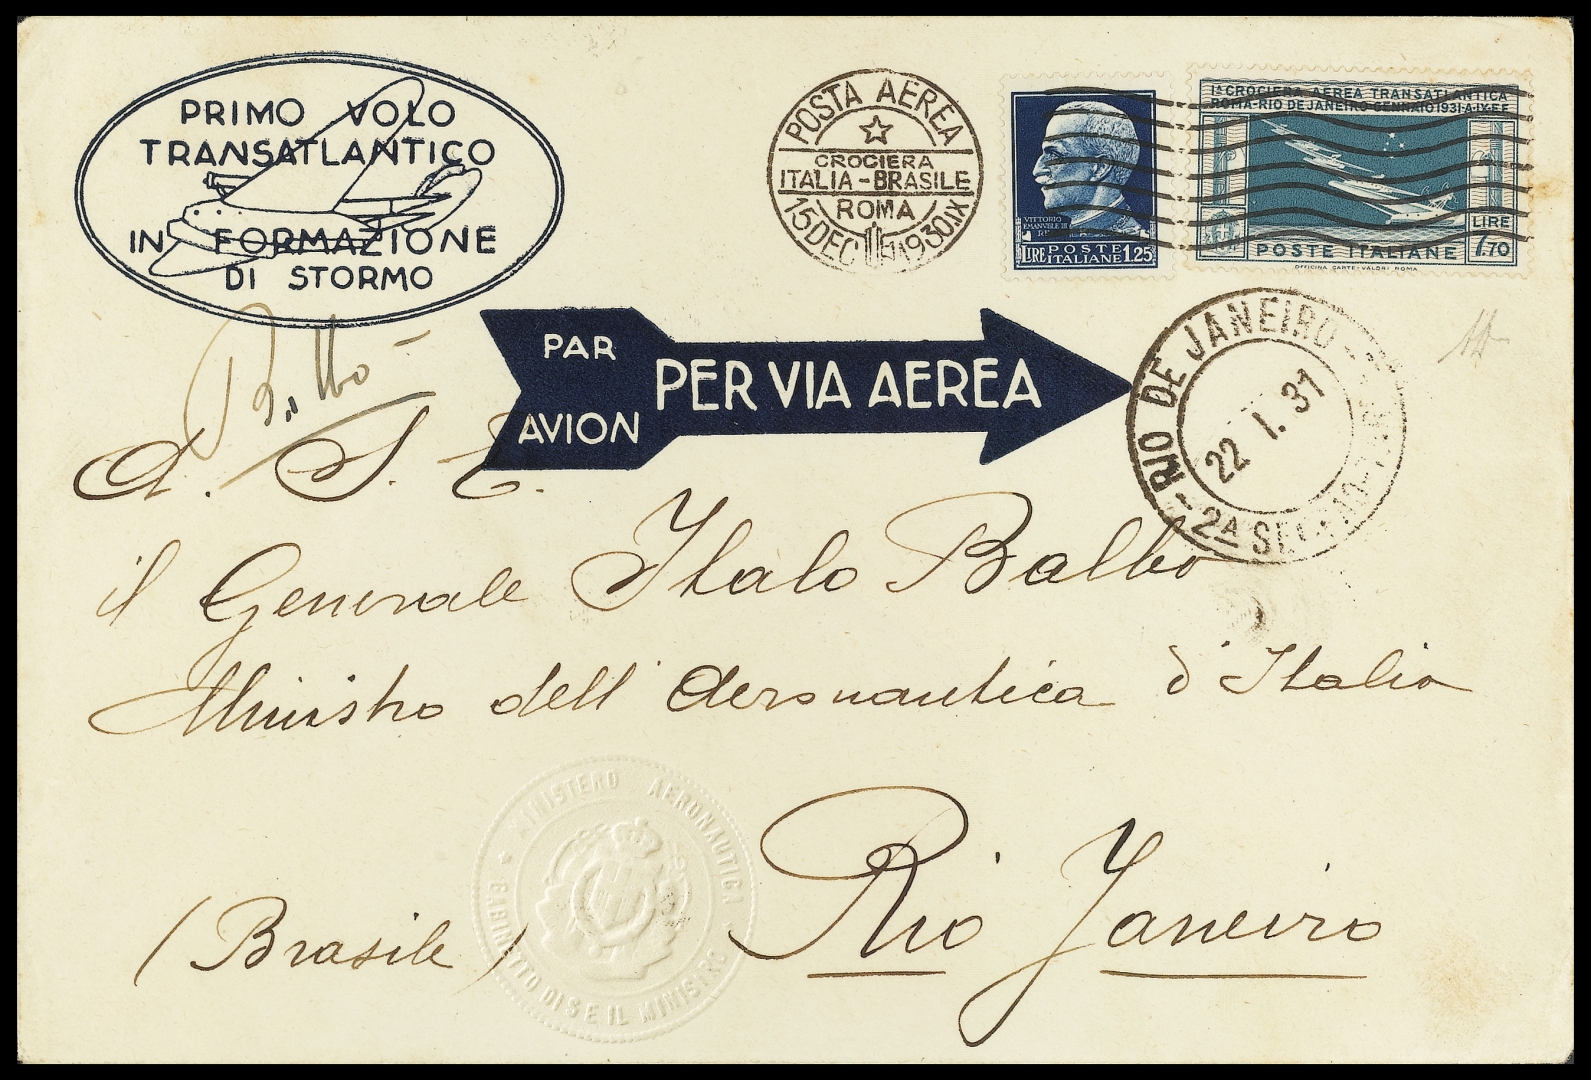 PRIMO VOLO
TRANSATLANTICO
IN FORMAZIONE
DI STORMO
POSTA AEREA
CROCIERA
ITALIA-BRASILE
ROMA
15 DEC 1930.IX
VITTORIO
EMANVELE III
LIRE POSTE ITALIANE 1.25
Iª CROCIERA AEREA TRANSATLANTICA
ROMA-RIO DE JANEIRO GENNAIO 1931-A.IX-E.F.
LIRE
7.70
POSTE ITALIANE
OFFICINA CARTE-VALORI ROMA
PAR
AVION
PER VIA AEREA
RIO DE JANEIRO
22 I. 31
2A SECÇÃO
Balbo
A. S. E.
il Generale Italo Balbo
Ministro dell'Aeronautica d'Italia
MINISTERO AERONAUTICA
GABINETTO DI S E IL MINISTRO
Rio Janeiro
(Brasile)